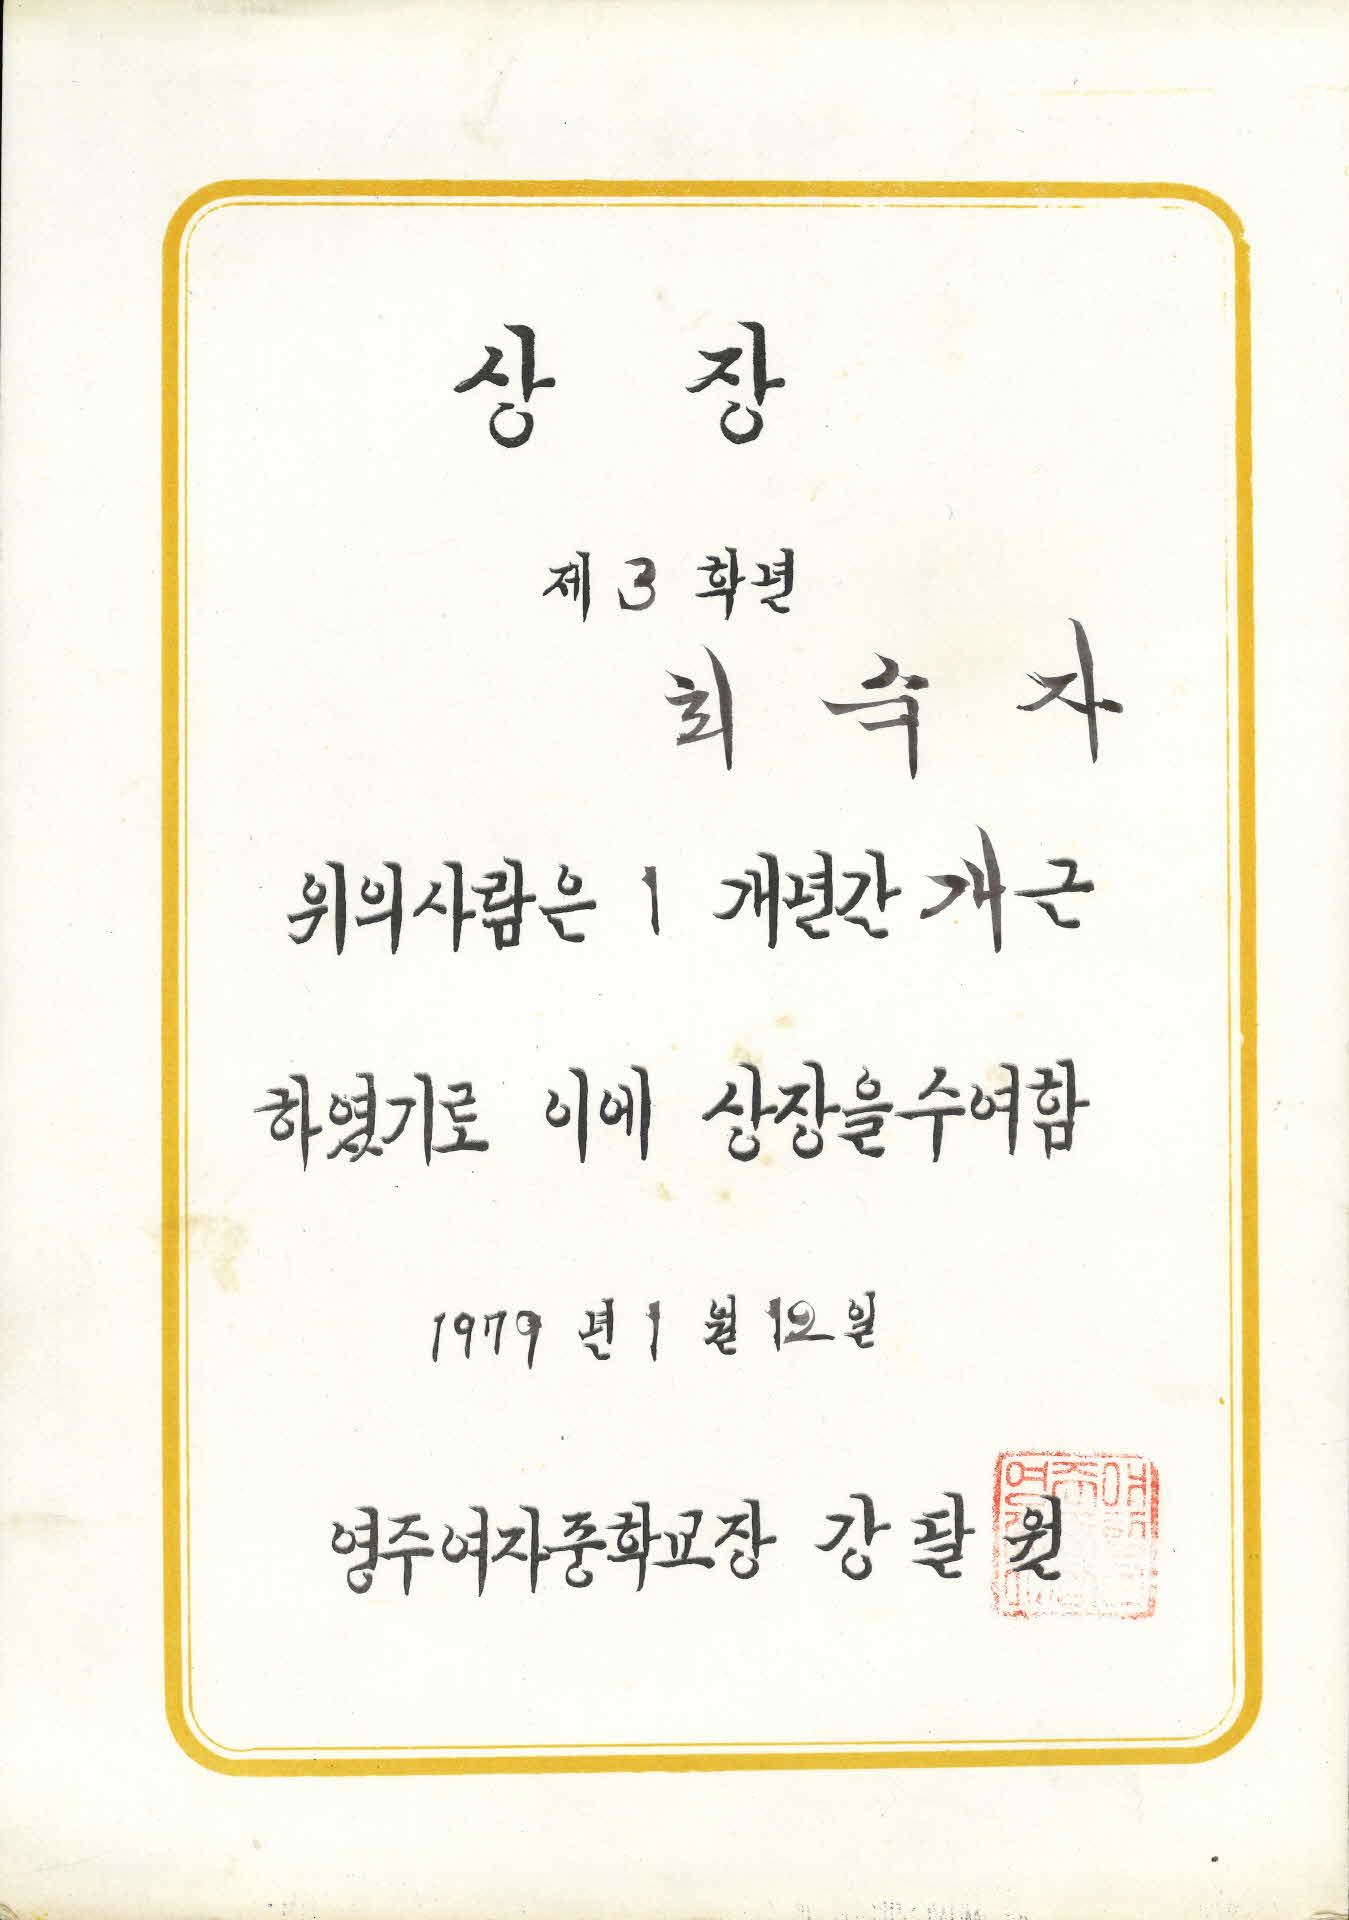 상 장
제 3 학년
최 숙 자
위의사람은 1 개년간 개근
하였기로 이에 상장을수여함
1979 년 1 월 12 일
영주여자중학교장 강 팔 원